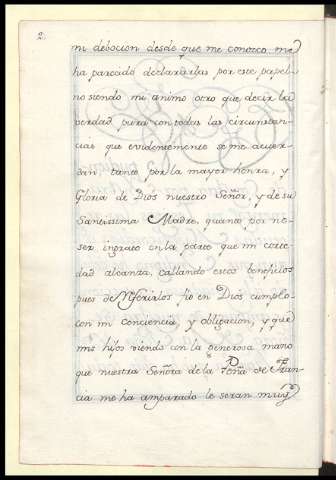 2
mi debocion desde que me conosco me
ha parecido declararlas por este papel
no siendo mi animo otro que decir la
verdad pura con todas las circunstan
cias que evidentemente se me acuer
dan, tanto por la mayor honra, y
Gloria de Dios nuestro Señor, y de su
Santissima Madre, quanto por no
ser ingrato en la parte que mi corte
dad alcanza, callando estos beneficios
pues de referirlos fio en Dios cumplo
con mi conciencia, y obligacion, y que
mis hijos viendo con la generosa mano
que nuestra Señora de la Peña de Fran
cia me ha amparado le seran muy